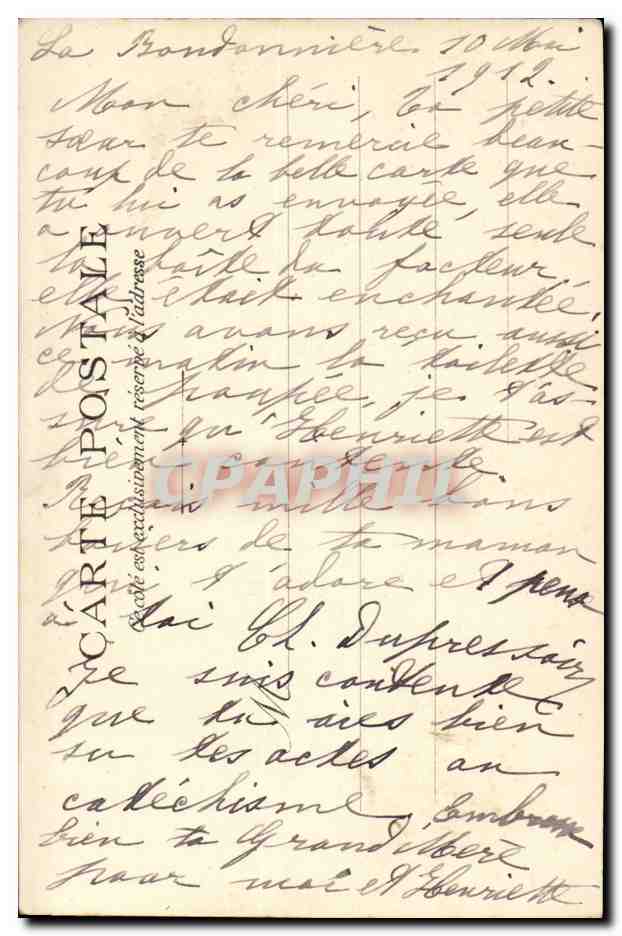 La Bondonnière 10 Mai
1912.
Mon chéri, ta petite
sœur te remercie beau-
coup de la belle carte que
tu lui as envoyée, elle
a ouvert toute seule
la boîte du facteur,
elle était enchantée,
Nous avons reçu aussi
ce matin la toilette
de poupée, je t'as-
sure qu'Henriette est
bien contente
Reçois mille bons
baisers de ta maman
qui t'adore et pense
à toi Ch. Dupressoir
Je suis contente
que tu aies bien
su tes actes au
catéchisme, embrasse
bien ta Grand Mère
pour moi et Henriette
CARTE POSTALE
Ce côté est exclusivement réservé à l'adresse
M
CPAPHIL